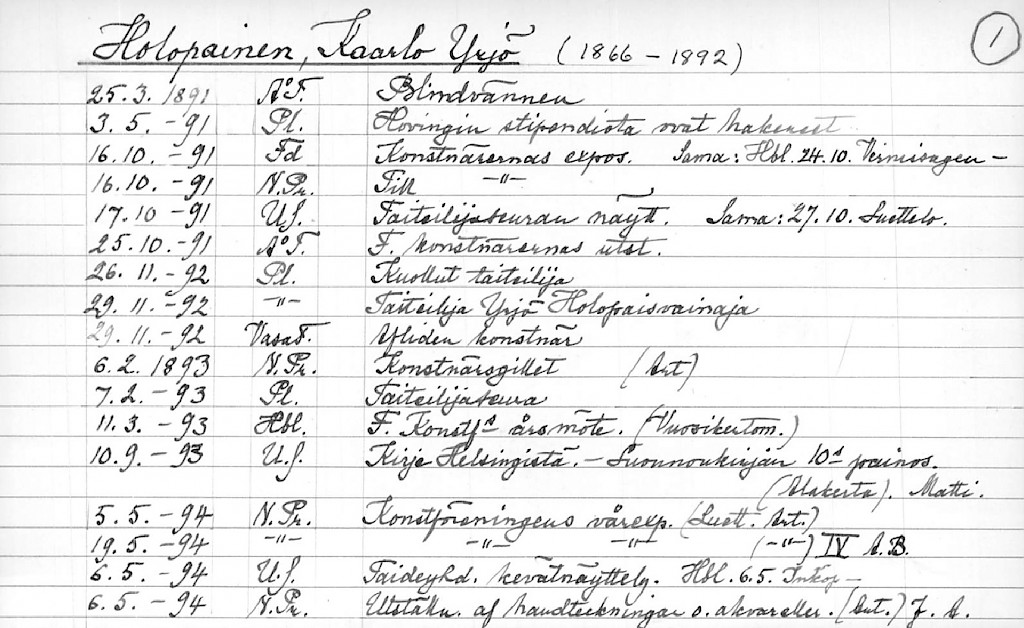 Holopainen, Kaarlo Yrjö (1866 – 1892) 1
25.3. 1891 Å.T. Blindvännen
3.5. –91 Pl. Hovingin stipendiota ovat hakeneet
16.10. –91 Fd Konstnärernas expos. Sama: Hbl. 24.10. Vernisagen –
16.10. –91 N.Pr. Till –"–
17.10 –91 U.S. Taiteilijaseuran näytt. Sama: 27.10. Luettelo.
25.10. –91 Å.T. F. konstnärernas utst.
26. 11. –92 Pl. Kuollut taiteilija
29. 11. –92 –"– Taiteilija Yrjö Holopaisvainaja
29. 11. –92 VasaT. Afliden konstnär
6.2. 1893 N.Pr. Konstnärsgillet (Art)
7.2. –93 Pl. Taiteilijaseura
11.3. –93 Hbl. F. Konstf:s årsmöte. (Vuosikertom.)
10.9. –93 U.S. Kirje Helsingistä. – Luonnonkirjan 10s painos.
(Alakerta). Matti.
5.5. –94 N.Pr. Konstföreningens vårexp. (Luett. Art.)
19.5. –94 –"– –"– –"– (–"–) IV A.B.
6.5. –94 U.S. Taideyhd. kevätnäyttely. Hbl. 6.5. Inköp –
6.5. –94 N.Pr. Utställn. af handteckningar o. akvareller. (Art.) J. A.